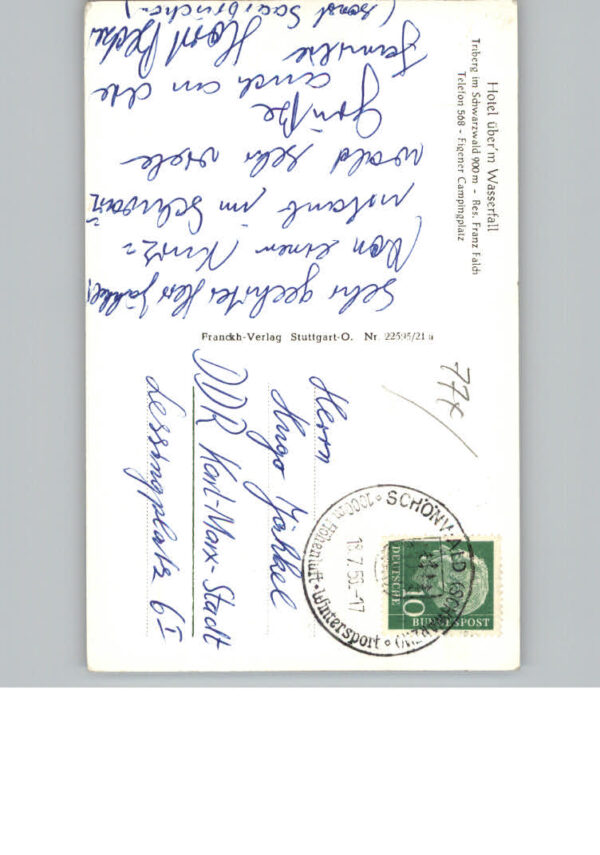 Hotel über'm Wasserfall
Triberg im Schwarzwald 900 m - Res. Franz Faldi
Telefon 568 - Eigener Campingplatz
Sehr geehrter Herr Jähkel,
Von einer Kurz=
urlaub im Schwarz=
wald sehr viele
Grüße
auch an die
Familie Horst
(sonst Saarbrücken)
Franckh-Verlag Stuttgart-O. Nr. 22595/21 a
77x
Herrn
Hugo Jähkel
DDR Karl-Marx-Stadt
Lessingplatz 6 I
SCHÖNWALD (SCHWARZW)
1000m Höhenluft · Wintersport
DEUTSCHE
BUNDESPOST
10